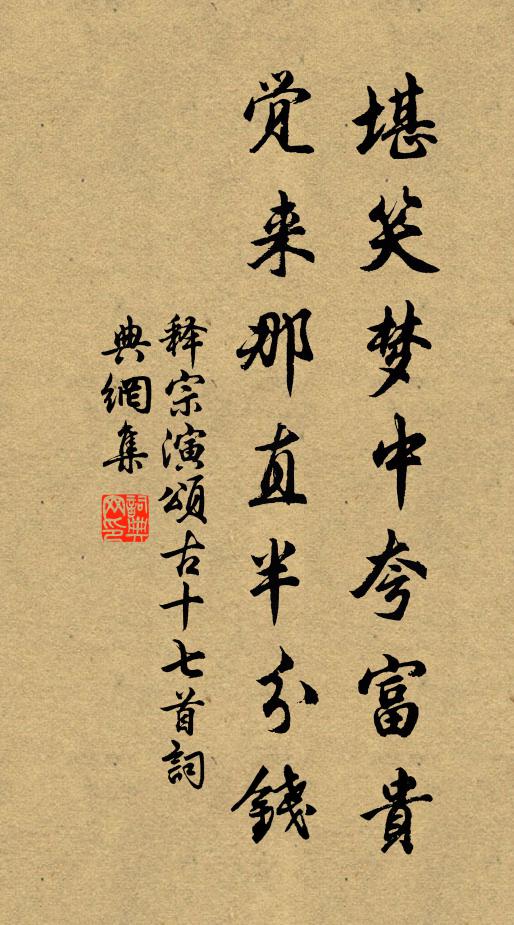 堪笑梦中夸富貴
覚来那直半分錢
释宗演頌古十七首詞
典網集
詞典网印